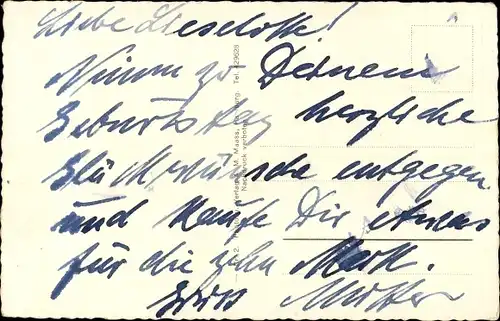 Liebe Lieselotte!
Nimm zu Deinem
Geburtstag herzliche
Glückwünsche entgegen
und kaufe Dir etwas
für die zehn Mark.
Mutter
Nachdruck verboten